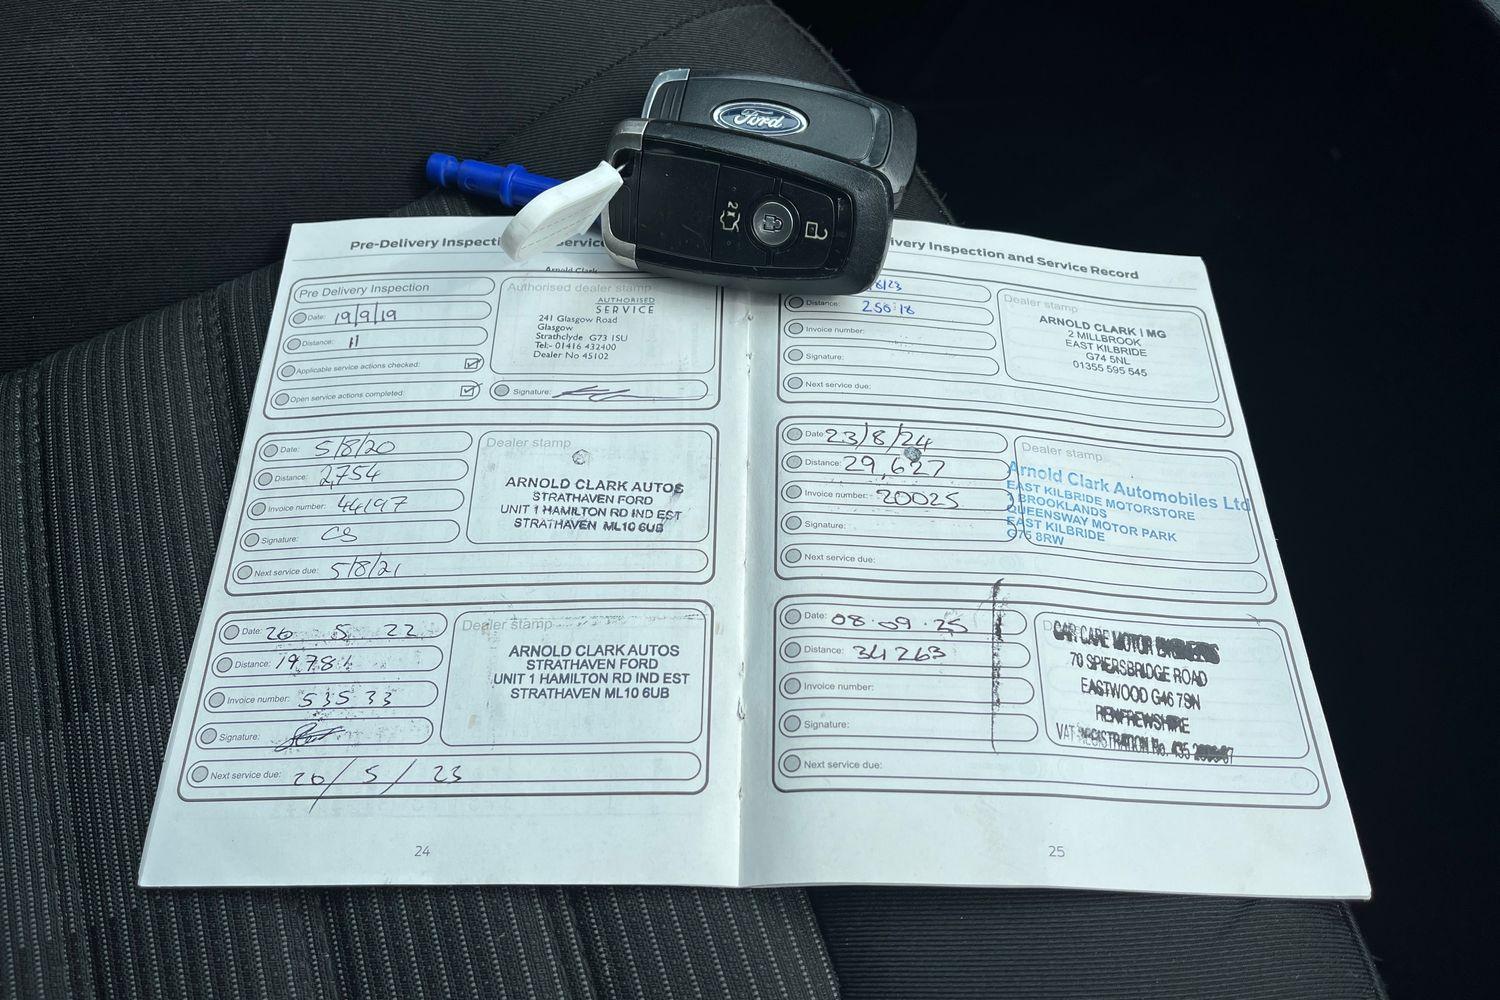 Ford
2x
Pre-Delivery
Pre Delivery Inspection
Date: 19/9/19
Distance: 11
Applicable service actions checked:
Open service actions completed:
Arnold Clark
Authorised dealer stamp
AUTHORISED
SERVICE
241 Glasgow Road
Glasgow
Strathclyde G73 1SU
Tel:- 01416 432400
Dealer No 45102
Signature:
Date: 5/8/20
Distance: 2,754
Invoice number: 44197
Signature: CS
Next service due: 5/8/21
Dealer stamp
ARNOLD CLARK AUTOS
STRATHAVEN FORD
UNIT 1 HAMILTON RD IND EST
STRATHAVEN ML10 6UB
Date: 20 5 22
Distance:
Invoice number: 53533
Signature:
Next service due: 20/5/23
Dealer stamp
ARNOLD CLARK AUTOS
STRATHAVEN FORD
UNIT 1 HAMILTON RD IND EST
STRATHAVEN ML10 6UB
24
Inspection and Service Record
Distance:
Invoice number:
Signature:
Next service due:
Dealer stamp
ARNOLD CLARK | MG
2 MILLBROOK
EAST KILBRIDE
G74 5NL
01355 595 545
Date: 23/8/24
Distance: 29,627
Invoice number: 20025
Signature:
Next service due:
Dealer stamp
Arnold Clark Automobiles Ltd
EAST KILBRIDE MOTORSTORE
BROOKLANDS
QUEENSWAY MOTOR PARK
EAST KILBRIDE
G75 8RW
Date: 08.09.25
Distance: 34263
Invoice number:
Signature:
Next service due:
CAR CARE MOTOR
70 SPIERSBRIDGE ROAD
EASTWOOD G46 7SN
RENFREWSHIRE
VAT REGISTRATION No.
25